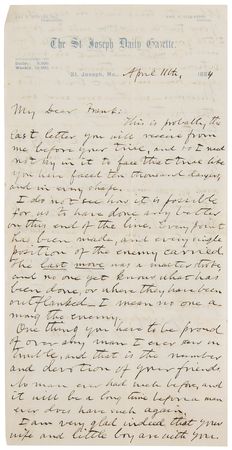 The St Joseph Daily Gazette.
St. Joseph, Mo., April 11th, 1884
My Dear Frank:
This is probally, the
last letter you will receive from
me before your trial, and so I need
not say in it to face that trial like
you have faced ten thousand dangers,
and in every shape.
I do not see how it is possible
for us to have done any better
on this end of the line. Every point
has been made, and every single
position of the enemy carried.
The last move was a master stroke
and no one to know what has
been done, or where they have been
outflanked. I mean no one a
mong the enemy.
One thing you have to be proud
of over any man I ever saw in
trouble, and that is the number
and devotion of your friends.
No man ever had such before, and
it will be a long time before a man
ever does have such again.
I am very glad indeed that your
wife and little boy are with you.